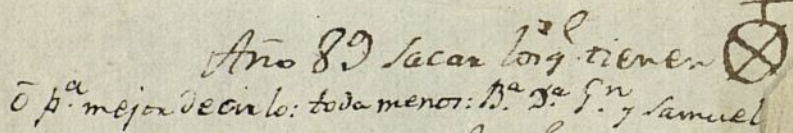 Año 89 sacar los q.e tienen
ō p.a mejor decirlo: toda menos: B.a D.a G.n y Samuel